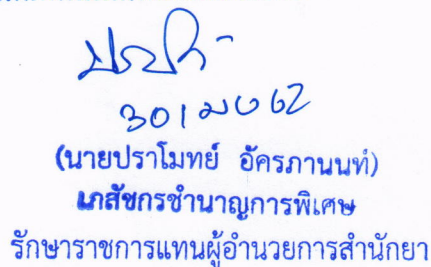 30 เมย 62
(นายปราโมทย์ อัครภานนท์)
เภสัชกรชำนาญการพิเศษ
รักษาราชการแทนผู้อำนวยการสำนักยา